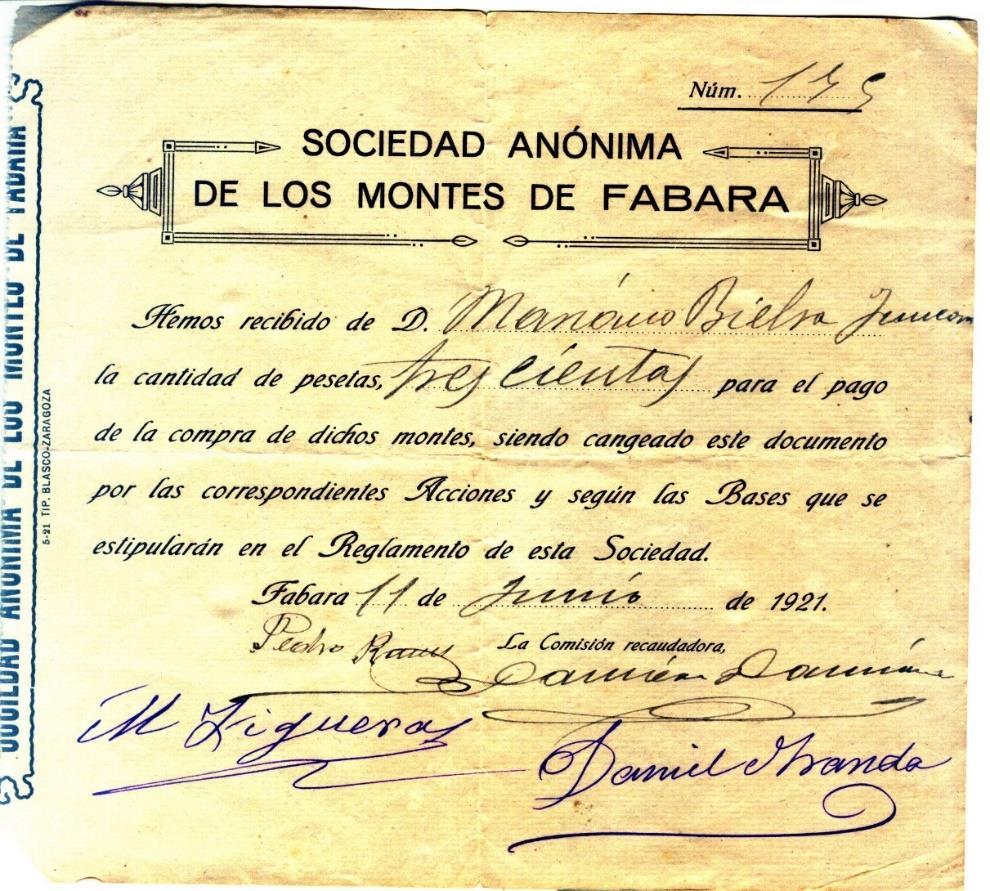 Núm. 175
SOCIEDAD ANÓNIMA
DE LOS MONTES DE FABARA
Hemos recibido de D. Mariano Bielsa
la cantidad de pesetas, trescientas para el pago
de la compra de dichos montes, siendo cangeado este documento
por las correspondientes Acciones y según las Bases que se
estipularán en el Reglamento de esta Sociedad.
Fabara 11 de Junio de 1921.
La Comisión recaudadora,
Pedro Damián Damián
M Figueras
Daniel
SOCIEDAD ANÓNIMA DE LOS MONTES DE FABARA
5-21 TIP. BLASCO-ZARAGOZA